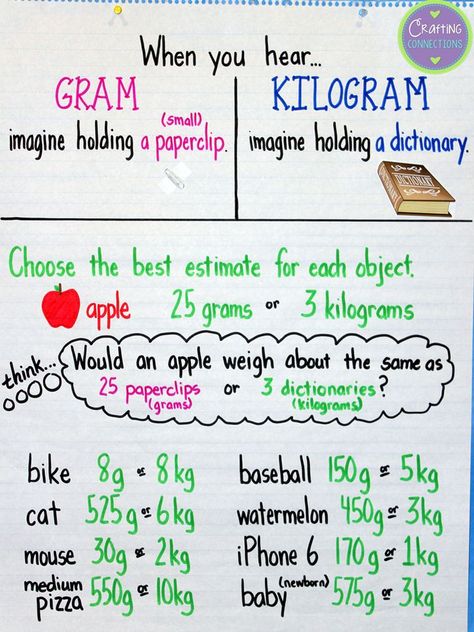 Crafting
CONNECTIONS
When you hear...
GRAM
(small)
imagine holding a paperclip.
KILOGRAM
imagine holding a dictionary.
DICTIONARY
Choose the best estimate for each object.
apple 25 grams or 3 kilograms
think...
Would an apple weigh about the same as
25 paperclips or 3 dictionaries?
(grams) (kilograms)
bike 8g or 8kg
cat 525g or 6kg
mouse 30g or 2kg
medium pizza 550g or 10kg
baseball 150g or 5kg
watermelon 450g or 3kg
iPhone 6 170g or 1kg
baby (newborn) 575g or 3kg